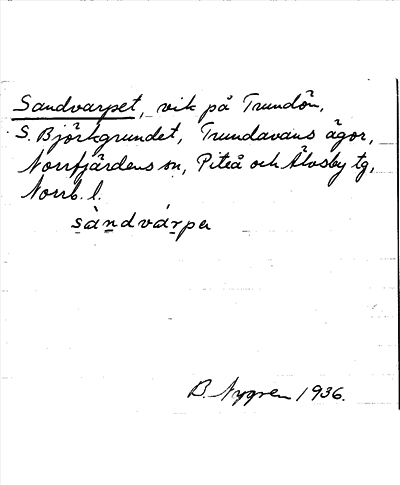 Sandvarpet, vik på Trundön,
S. Björkgrundet, Trundavans ägor,
Norrfjärdens sn, Piteå och Älvsby tg,
Norrb. l.
sàndvárpa
B. Nygren 1936.